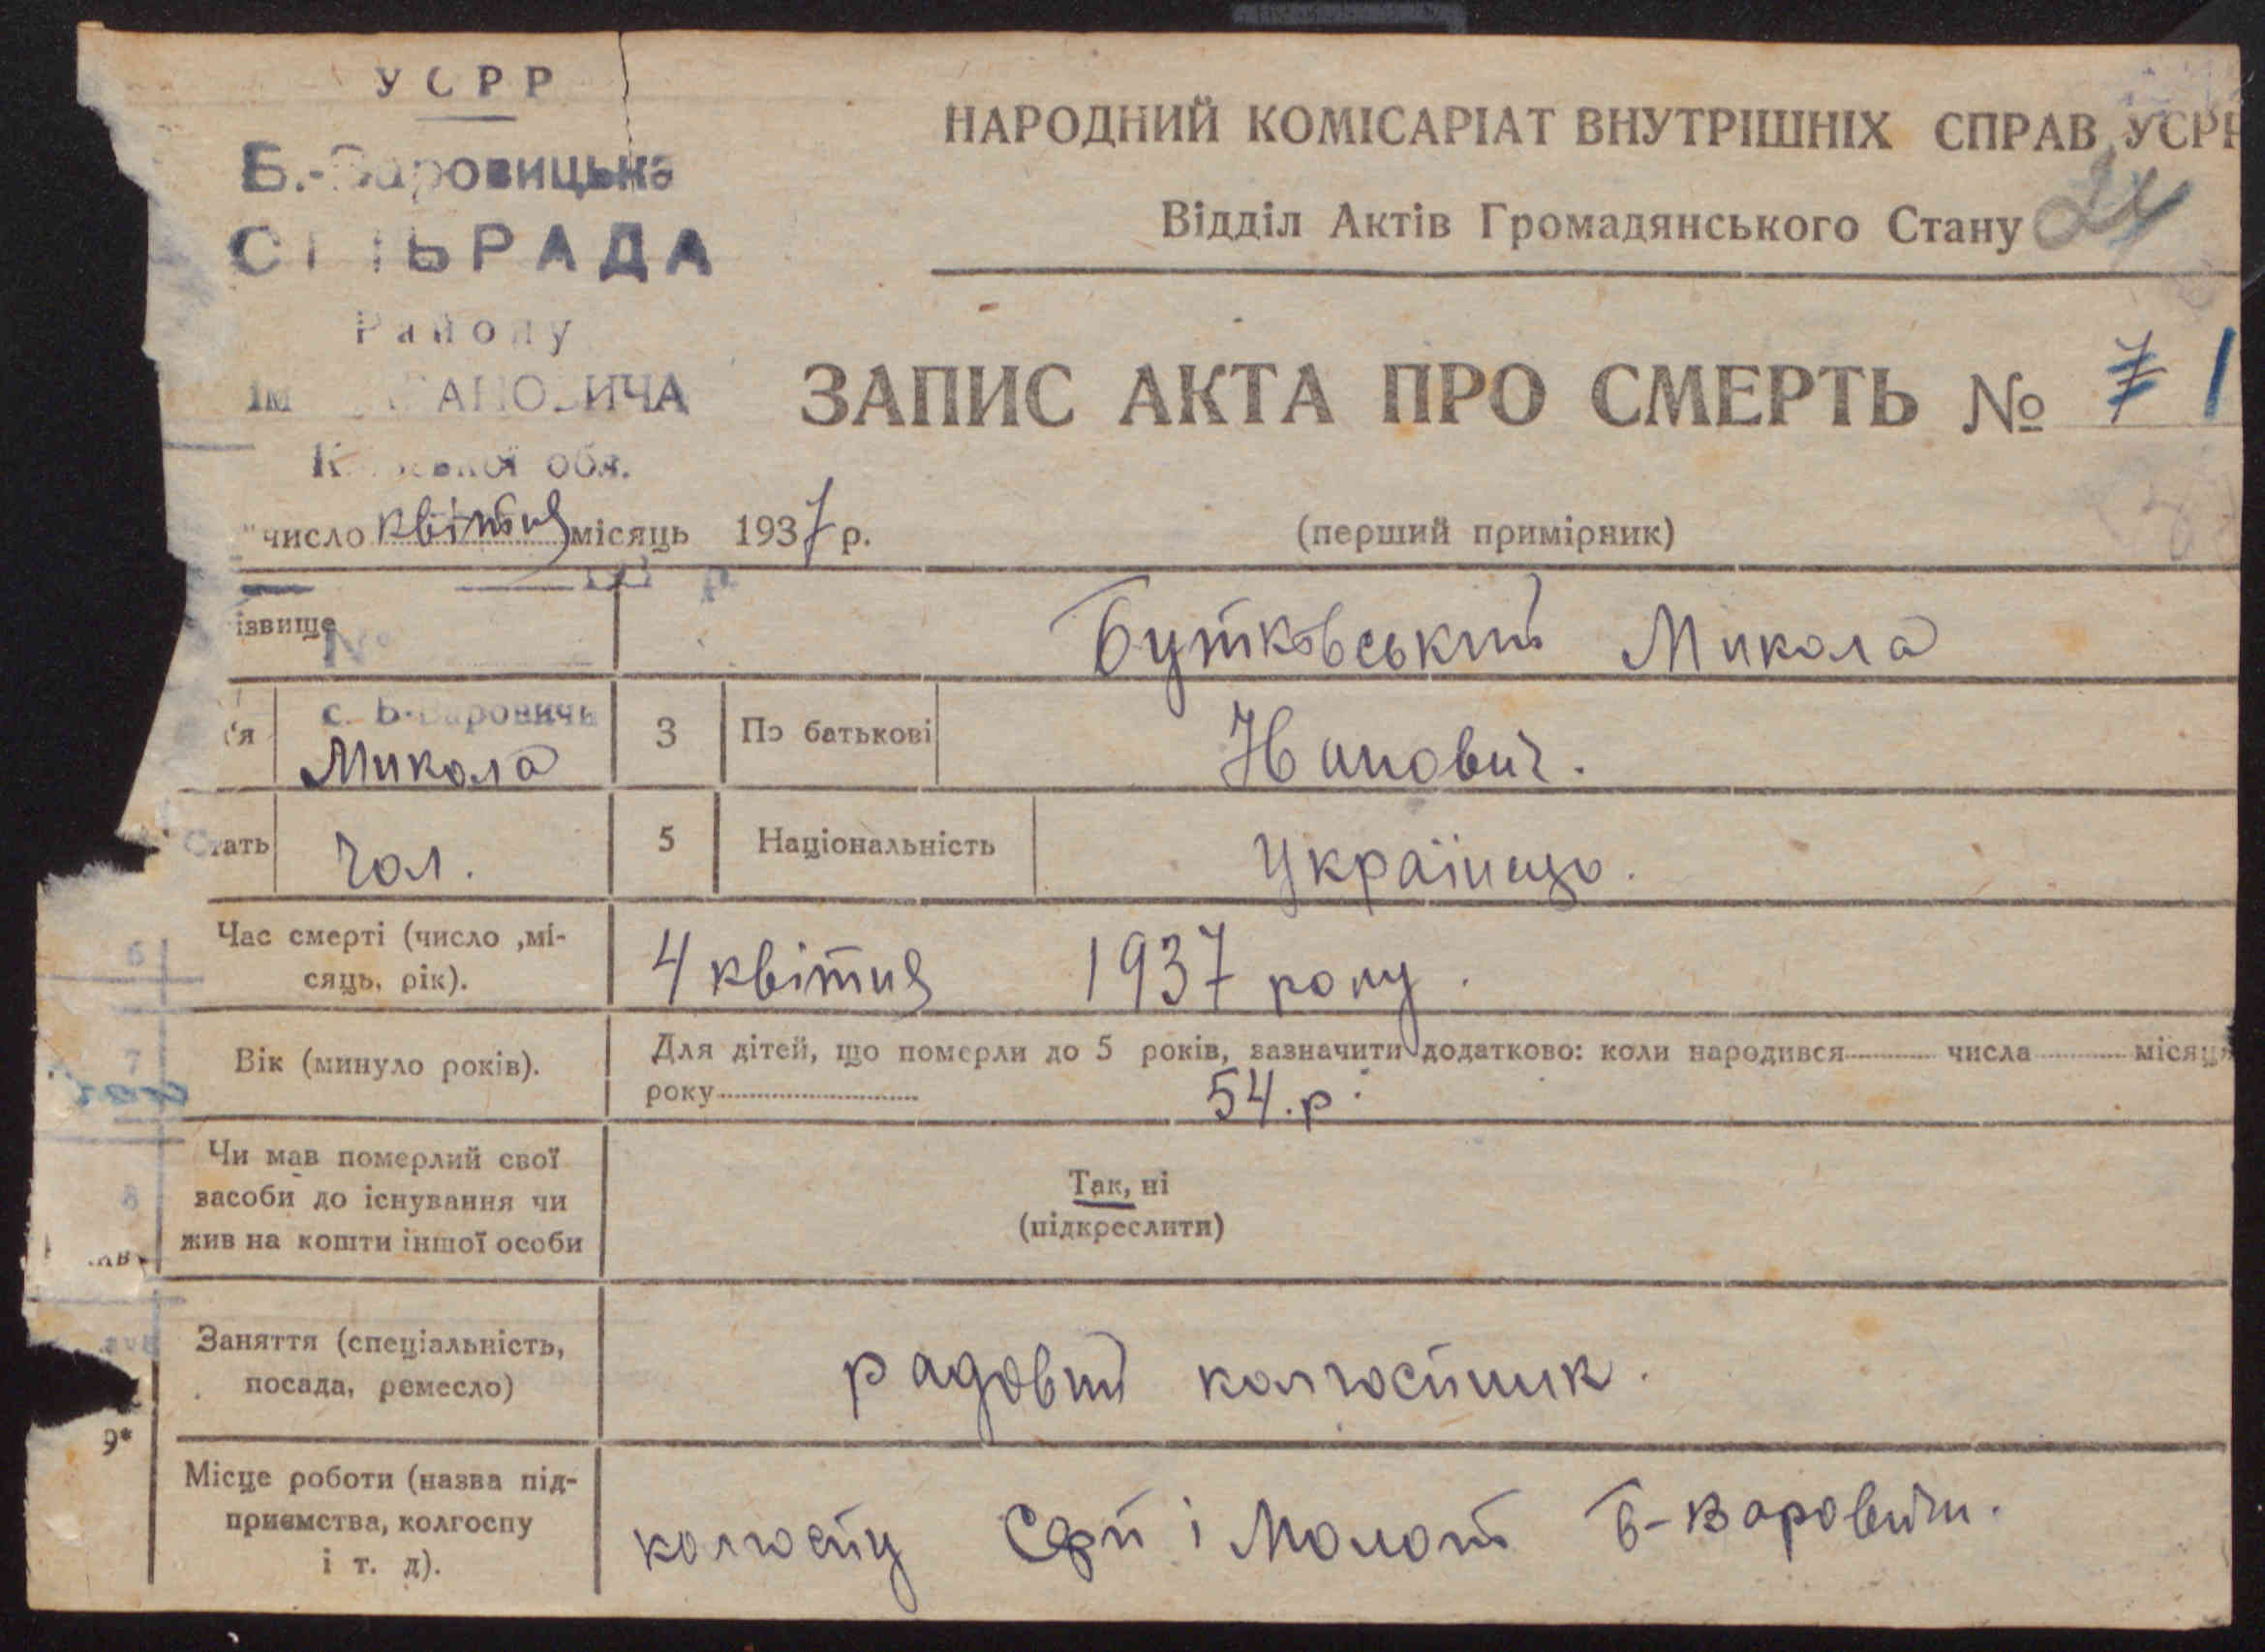 УСРР
Б.-Варовицька
СІЛЬРАДА
Району
ім КАГАНОВИЧА
Київської обл.
НАРОДНИЙ КОМІСАРІАТ ВНУТРІШНІХ СПРАВ УСРР
Відділ Актів Громадянського Стану
24
ЗАПИС АКТА ПРО СМЕРТЬ № 7 1
" число квітня місяць 1937 р.
(перший примірник)
ізвище
№
Бутковський Микола
с. Б-Варовичі
'я Микола 3 По батькові Іванович.
Стать чол. 5 Національність Українець.
6 Час смерті (число ,мі-
сяць, рік).
4 квітня 1937 року.
7 Вік (минуло років).
Для дітей, що померли до 5 років, зазначити додатково: коли народився числа місяця
року 54.р.
8 Чи мав померлий свої
засоби до існування чи
жив на кошти іншої особи
Так, ні
(підкреслити)
Заняття (спеціальність,
посада, ремесло)
радовий колгоспник.
9*
Місце роботи (назва під-
приємства, колгоспу
і т. д).
колгоспу Серп і Молот Б-Варовичи.